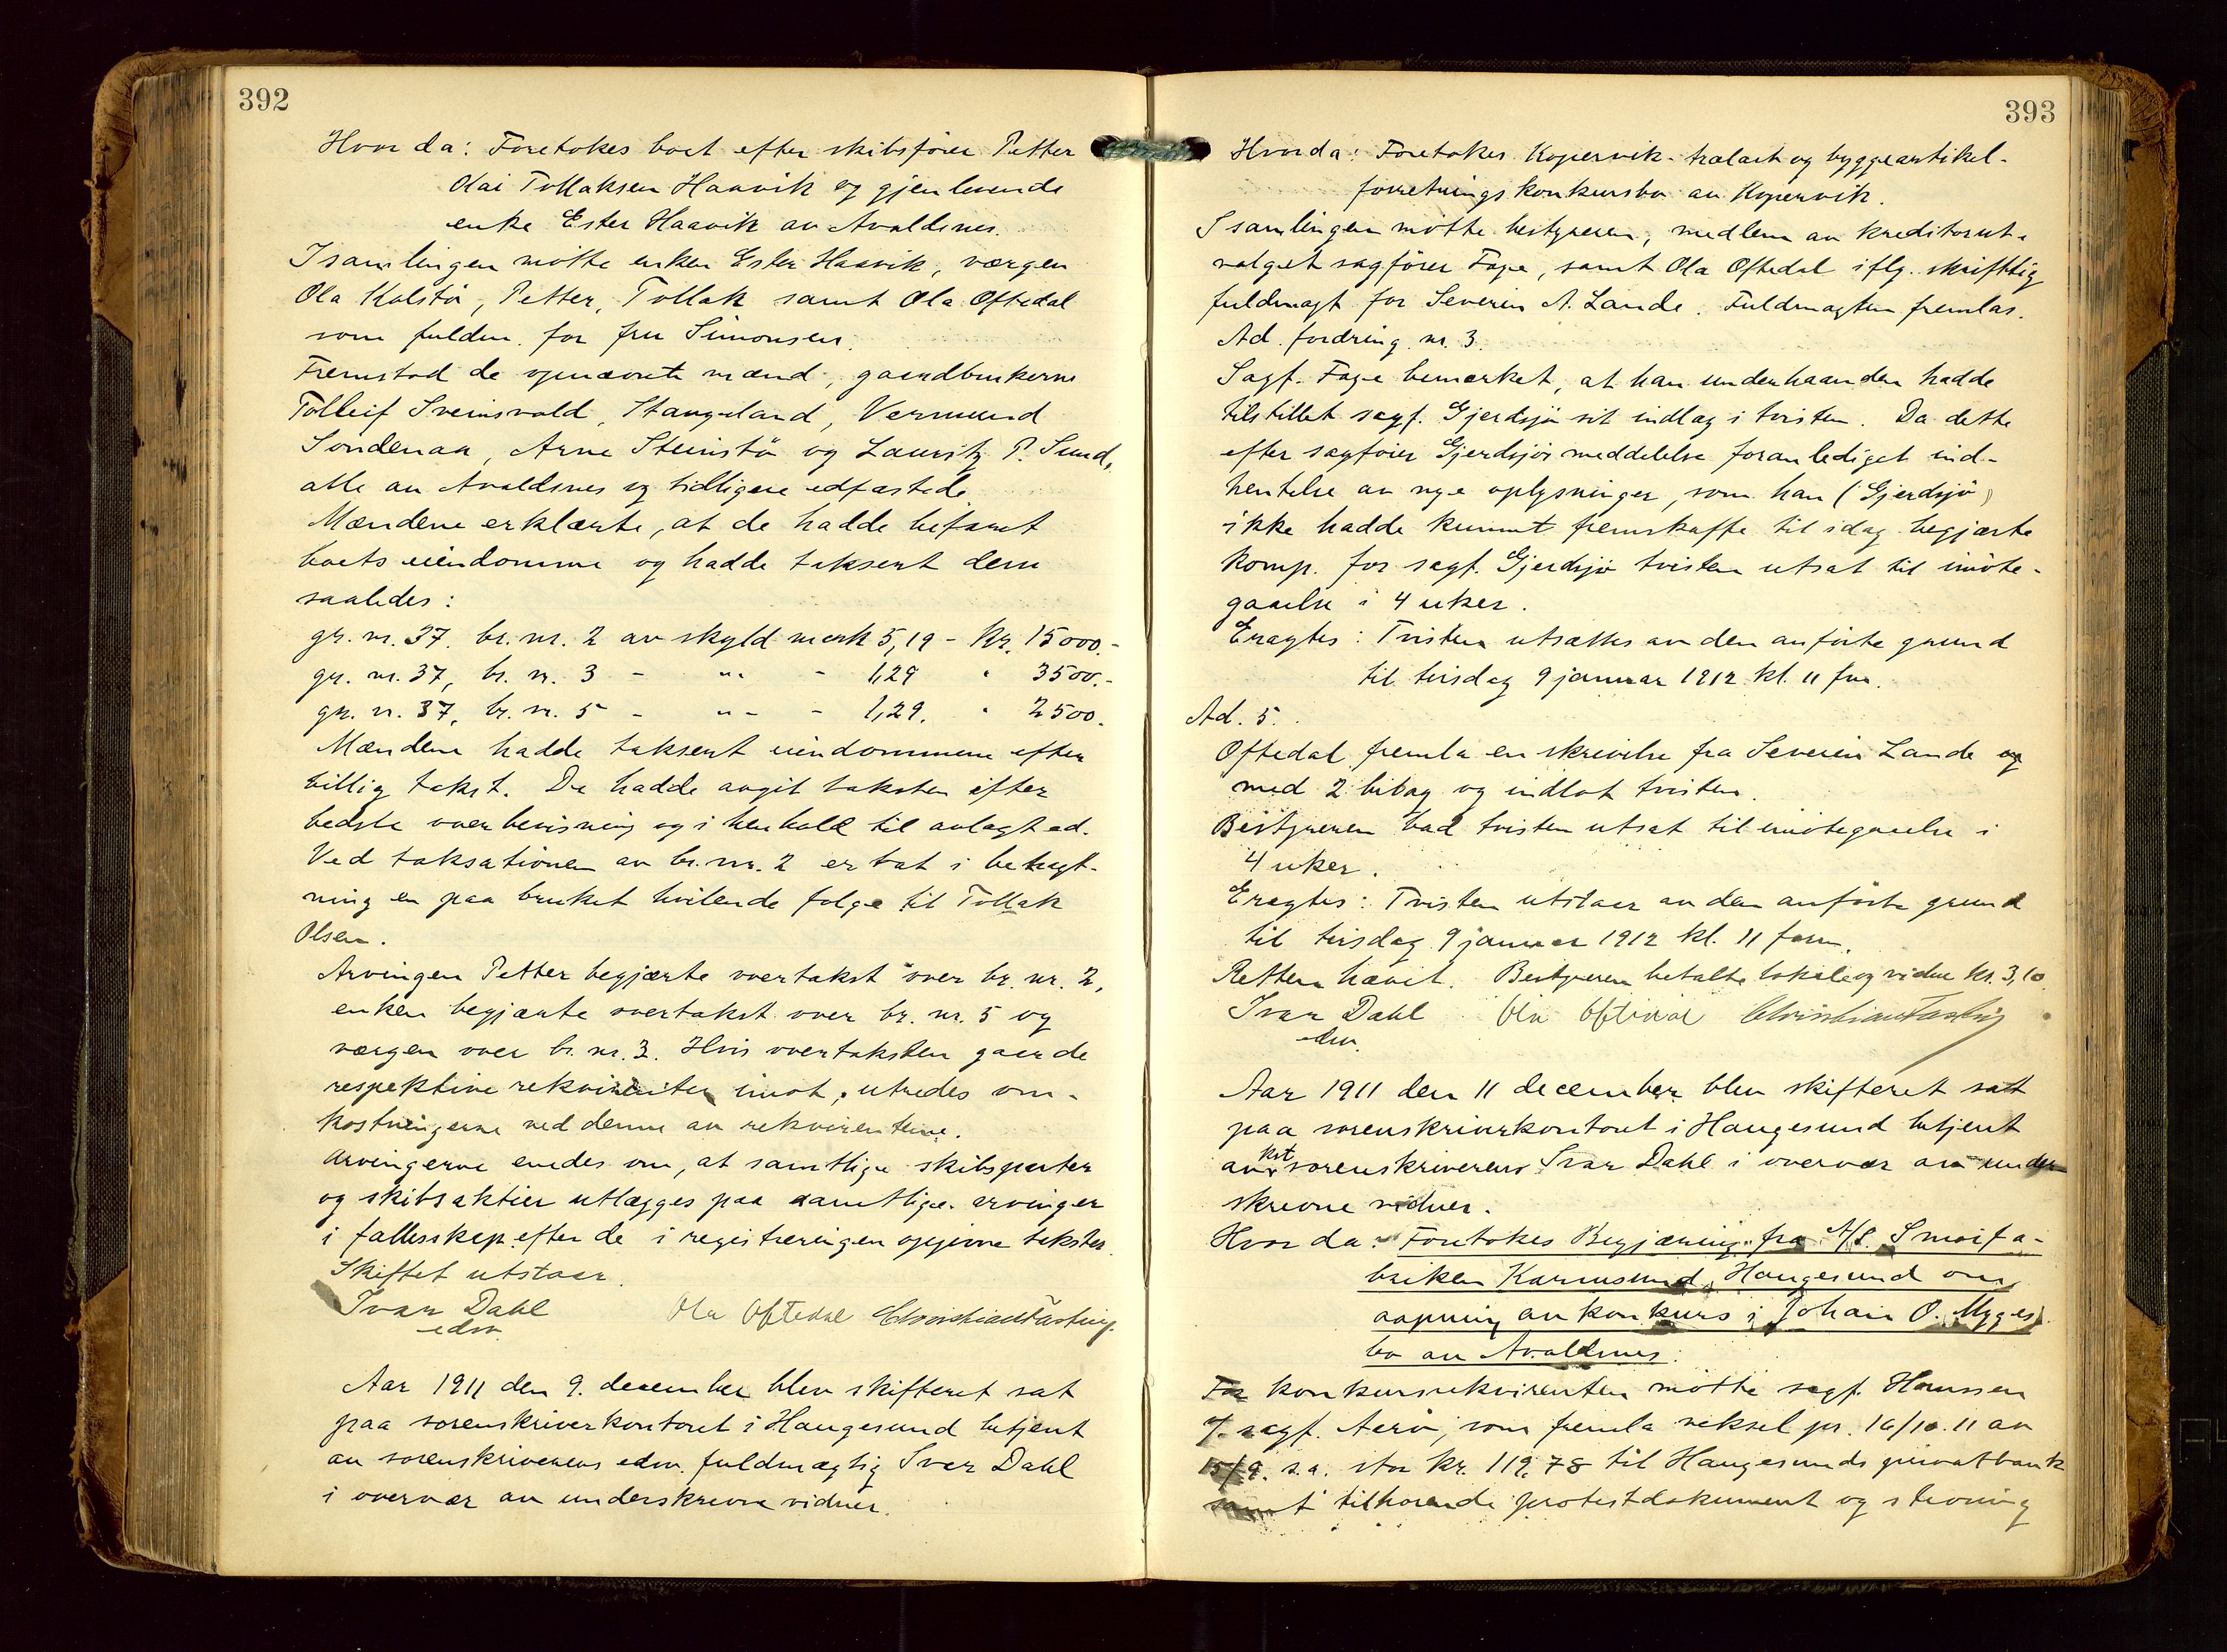 392
Hvor da: Foretokes boet efter skibsfører Petter
Olai Tollaksen Haavik og gjenlevende
enke Ester Haavik av Avaldsnes.
I samlingen møtte enken Ester Haavik, værgen
Ola Kalstø, Petter, Tollak samt Ola Oftedal
som fuldm. for fru Simonsen.
Fremstod de opnævnte mænd, gaardbrukerne
Tolleif Sveinsvold, Stangeland, Vermund
Søndenaa, Arne Steinstø og Lauritz P. Sund,
alle av Avaldsnes og tidligere edfæstede.
Mændene erklærte, at de hadde befaret
boets eiendomme og hadde taksert dem
saaledes:
gr. nr. 37. br. nr. 2 av skyld merk 5,19 - Kr. 15000.-
gr. nr. 37, br. nr. 3 - " - 1,29 " 3500.-
gr. nr. 37, br. nr. 5 - " - 1,29. " 2500.
Mændene hadde taksert eiendommene efter
billig takst. De hadde avgit taksten efter
bedste overbevisning og i henhold til avlagt ed.
Ved taksationen av br. nr. 2 er tat i betragt-
ning en paa bruket hvilende følge til Tollak
Olsen.
Arvingen Petter begjærte overtakst over br. nr. 2,
enken begjærte overtakst over br. nr. 5 og
værgen over br. nr. 3. Hvis overtaksten gaar de
respektive rekvirenter imot, utredes om-
kostningerne ved denne av rekvirentene.
Arvingerne enedes om, at samtlige skibsparter
og skibsaktier utlægges paa samtlige arvinger
i fællesskap efter de i registreringen opgivne takster.
Skiftet utstaar.
Ivar Dahl Ola Oftedal Christian Fasting
edsv.
Aar 1911 den 9. december blev skifteret sat
paa sorenskriverkontoret i Haugesund betjent
av sorenskriverens edsv. fuldmægtig Ivar Dahl
i overvær av underskrevne vidner.
393
Hvor da: Foretokes Kopervik trælast og byggeartikel-
forretnings konkursbo av Kopervik.
I samlingen møtte bestyreren, medlem av kreditorut-
valget sagfører Fage, samt Ola Oftedal iflg. skriftlig
fuldmagt for Severin A. Lande. Fuldmagten fremlas.
Ad. fordring nr. 3.
Sagf. Fage bemerket, at han underhaanden hadde
tilstillet sagf. Gjerdsjø sit indlæg i tvisten. Da dette
efter sagfører Gjerdsjøs meddelelse foranlediget ind-
hentelse av nye oplysninger, som han (Gjerdsjø)
ikke hadde kunnet fremskaffe til idag begjærte
komp. for sagf. Gjerdsjø tvisten utsat til imøte-
gaaelse i 4 uker.
Eragtes: Tvisten utsættes av den anførte grund
til tirsdag 9 januar 1912 kl. 11 fm.
Ad. 5.
Oftedal fremla en skrivelse fra Severin Lande og
med 2 bilag og indlot tvisten.
Bestyreren bad tvisten utsat til imøtegaaelse i
4 uker.
Eragtes: Tvisten utstaar av den anførte grund
til tirsdag 9 januar 1912 kl. 11 form.
Retten hævet. Bestyreren betalte lokale og vidne kr. 3,10
Ivar Dahl Ola Oftedal Christian Fasting
edsv.
Aar 1911 den 11 december blev skifteret satt
paa sorenskriverkontoret i Haugesund betjent
av kst. sorenskriveren Ivar Dahl i overvær av under-
skrevne vidner.
Hvor da: Foretokes Begjæring fra A/S. Smørfa-
briken Karmsund, Haugesund om
aapning av konkurs i Johan O. Mygges
bo av Avaldsnes.
For konkursrekvirenten møtte sagf. Hanssen
f. sagf. Aarø, som fremla veksel pr. 16/10. 11 av
15/9. s.a. stor kr. 119,78 til Haugesunds privatbank
samt tilhørende protestdokument og stevning